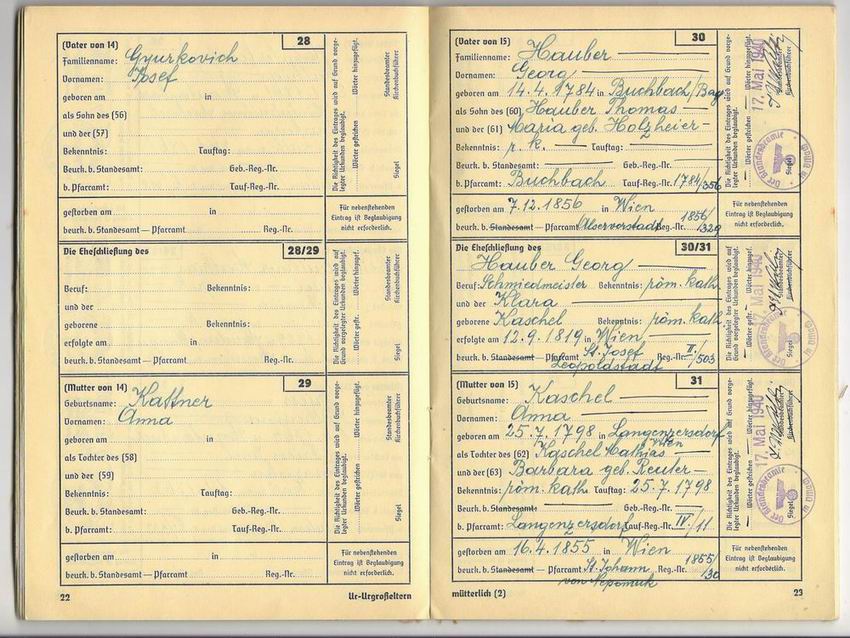 28
(Vater von 14)
Familienname: Gyurkovich
Vornamen: Josef
geboren am in
als Sohn des (56)
und der (57)
Bekenntnis: Tauftag:
Beurk. b. Standesamt: Geb.-Reg.-Nr.
b. Pfarramt: Tauf-Reg.-Nr.
gestorben am in
beurk. b. Standesamt — Pfarramt Reg.-Nr.
Die Richtigkeit des Eintrages wird auf Grund vorgelegter Urkunden beglaubigt.
Wörter gestrichen Wörter hinzugefügt.
Standesbeamter
Kirchenbuchführer
Siegel
Für nebenstehenden
Eintrag ist Beglaubigung
nicht erforderlich.
28/29
Die Eheschließung des
Beruf: Bekenntnis:
und der
geborene Bekenntnis:
erfolgte am in
beurk. b. Standesamt — Pfarramt Reg.-Nr.
Die Richtigkeit des Eintrages wird auf Grund vorgelegter Urkunden beglaubigt.
Wörter gestr. Wörter hinzugef.
Standesbeamter
Kirchenbuchführer
Siegel
29
(Mutter von 14)
Geburtsname: Kattner
Vornamen: Anna
geboren am in
als Tochter des (58)
und der (59)
Bekenntnis: Tauftag:
Beurk. b. Standesamt: Geb.-Reg.-Nr.
b. Pfarramt: Tauf-Reg.-Nr.
gestorben am in
beurk. b. Standesamt — Pfarramt Reg.-Nr.
Die Richtigkeit des Eintrages wird auf Grund vorgelegter Urkunden beglaubigt.
Wörter gestrichen Wörter hinzugefügt.
Standesbeamter
Kirchenbuchführer
Siegel
Für nebenstehenden
Eintrag ist Beglaubigung
nicht erforderlich.
22
Ur-Urgroßeltern
30
(Vater von 15)
Familienname: Hauber
Vornamen: Georg
geboren am 14.4.1784 in Buchbach/Bay
als Sohn des (60) Hauber Thomas
und der (61) Maria geb. Holzheier
Bekenntnis: r. k. Tauftag:
Beurk. b. Standesamt: Geb.-Reg.-Nr.
b. Pfarramt: Buchbach Tauf-Reg.-Nr. 1784/356
gestorben am 7.12.1856 in Wien
beurk. b. Standesamt — Pfarramt Alservorstadt Reg.-Nr. 1856/1329
Die Richtigkeit des Eintrages wird auf Grund vorgelegter Urkunden beglaubigt.
Wörter gestrichen Wörter hinzugefügt.
17. Mai 1940
Kirchenbuchführer
Der Standesbeamte in
Siegel
Für nebenstehenden
Eintrag ist Beglaubigung
nicht erforderlich.
30/31
Die Eheschließung des
Hauber Georg
Beruf: Schmiedmeister Bekenntnis: röm. kath.
und der Klara
geborene Kaschel Bekenntnis: röm. kath.
erfolgte am 12.9.1819 in Wien
beurk. b. Standesamt — Pfarramt St. Josef Reg.-Nr. II/503
Leopoldstadt
Die Richtigkeit des Eintrages wird auf Grund vorgelegter Urkunden beglaubigt.
Wörter gestr. Wörter hinzugef.
17. Mai 1940
Kirchenbuchführer
Der Standesbeamte in
Siegel
31
(Mutter von 15)
Geburtsname: Kaschel
Vornamen: Anna
geboren am 25.7.1798 in Langenzersdorf
b/Wien
als Tochter des (62) Kaschel Mathias
und der (63) Barbara geb. Reuter
Bekenntnis: röm. kath. Tauftag: 25.7.1798
Beurk. b. Standesamt: Geb.-Reg.-Nr.
b. Pfarramt: Langenzersdorf Tauf-Reg.-Nr. IV/11
gestorben am 16.4.1855 in Wien
beurk. b. Standesamt — Pfarramt St. Johann Reg.-Nr. 1855/30
von Nepomuk
Die Richtigkeit des Eintrages wird auf Grund vorgelegter Urkunden beglaubigt.
Wörter gestrichen Wörter hinzugefügt.
17. Mai 1940
Kirchenbuchführer
Der Standesbeamte in
Siegel
Für nebenstehenden
Eintrag ist Beglaubigung
nicht erforderlich.
mütterlich (2)
23